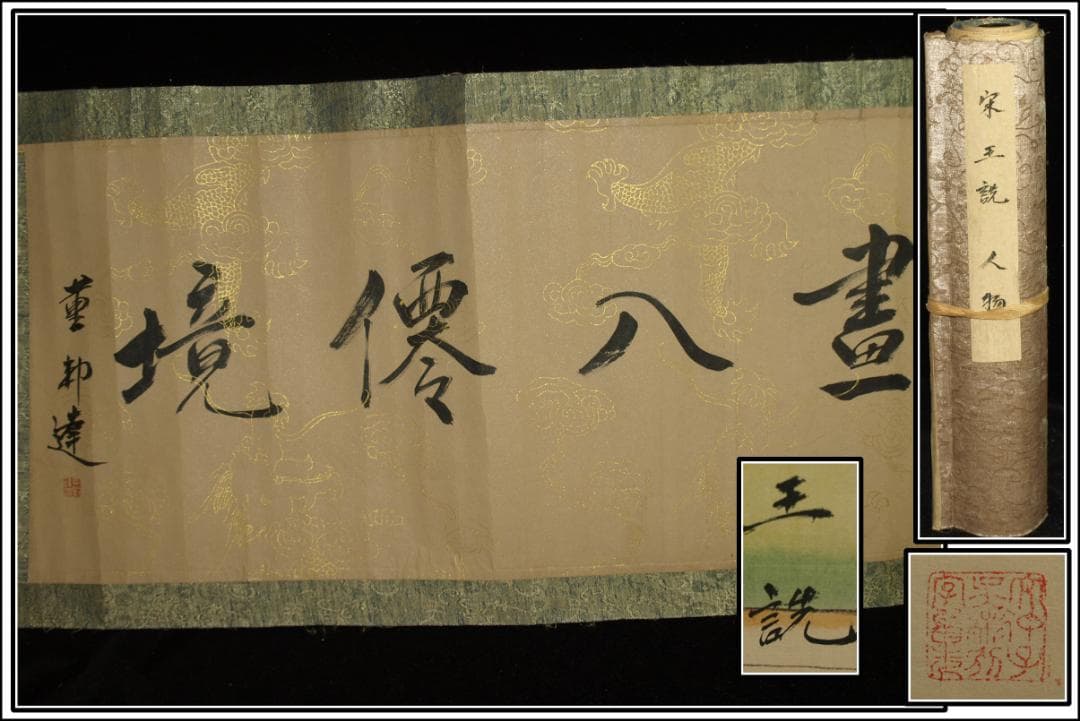 畫入僊境
董邦達
宋王詵人物
王詵